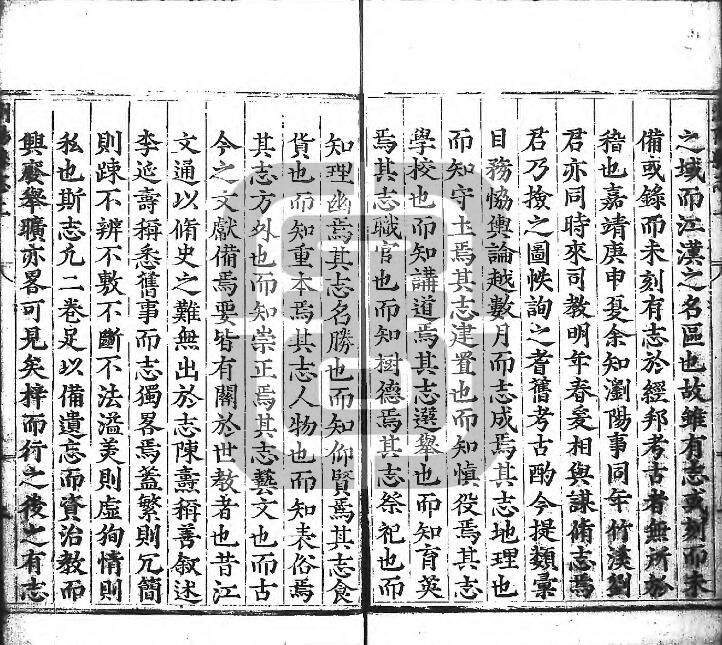 之域而江漢之名區也故雖有志或刻而未
備或錄而未刻有志於經邦考古者無所於
稽也嘉靖庚申夏余知瀏陽事同年竹溪劉
君亦同時來司教明年春爰相與謀脩志焉
君乃撿之圖帙詢之耆舊考古酌今提類彙
目務恊輿論越數月而志成焉其志地理也
而知守土焉其志建置也而知慎役焉其志
學校也而知講道焉其志選舉也而知育英
焉其志職官也而知樹德焉其志祭祀也而
知理幽焉其志名勝也而知仰賢焉其志食
貨也而知重本焉其志人物也而知表俗焉
其志方外也而知崇正焉其志藝文也而古
今之文獻備焉要皆有關於世教者也昔江
文通以脩史之難無出於志陳壽稱善叙述
李延壽稱悉舊事而志獨畧焉盖繁則冗簡
則踈不辨不敷不斷不法溢美則虛狥情則
私也斯志凢二卷足以備遺忘而資治教而
興廢舉曠亦畧可見矣梓而行之後之有志